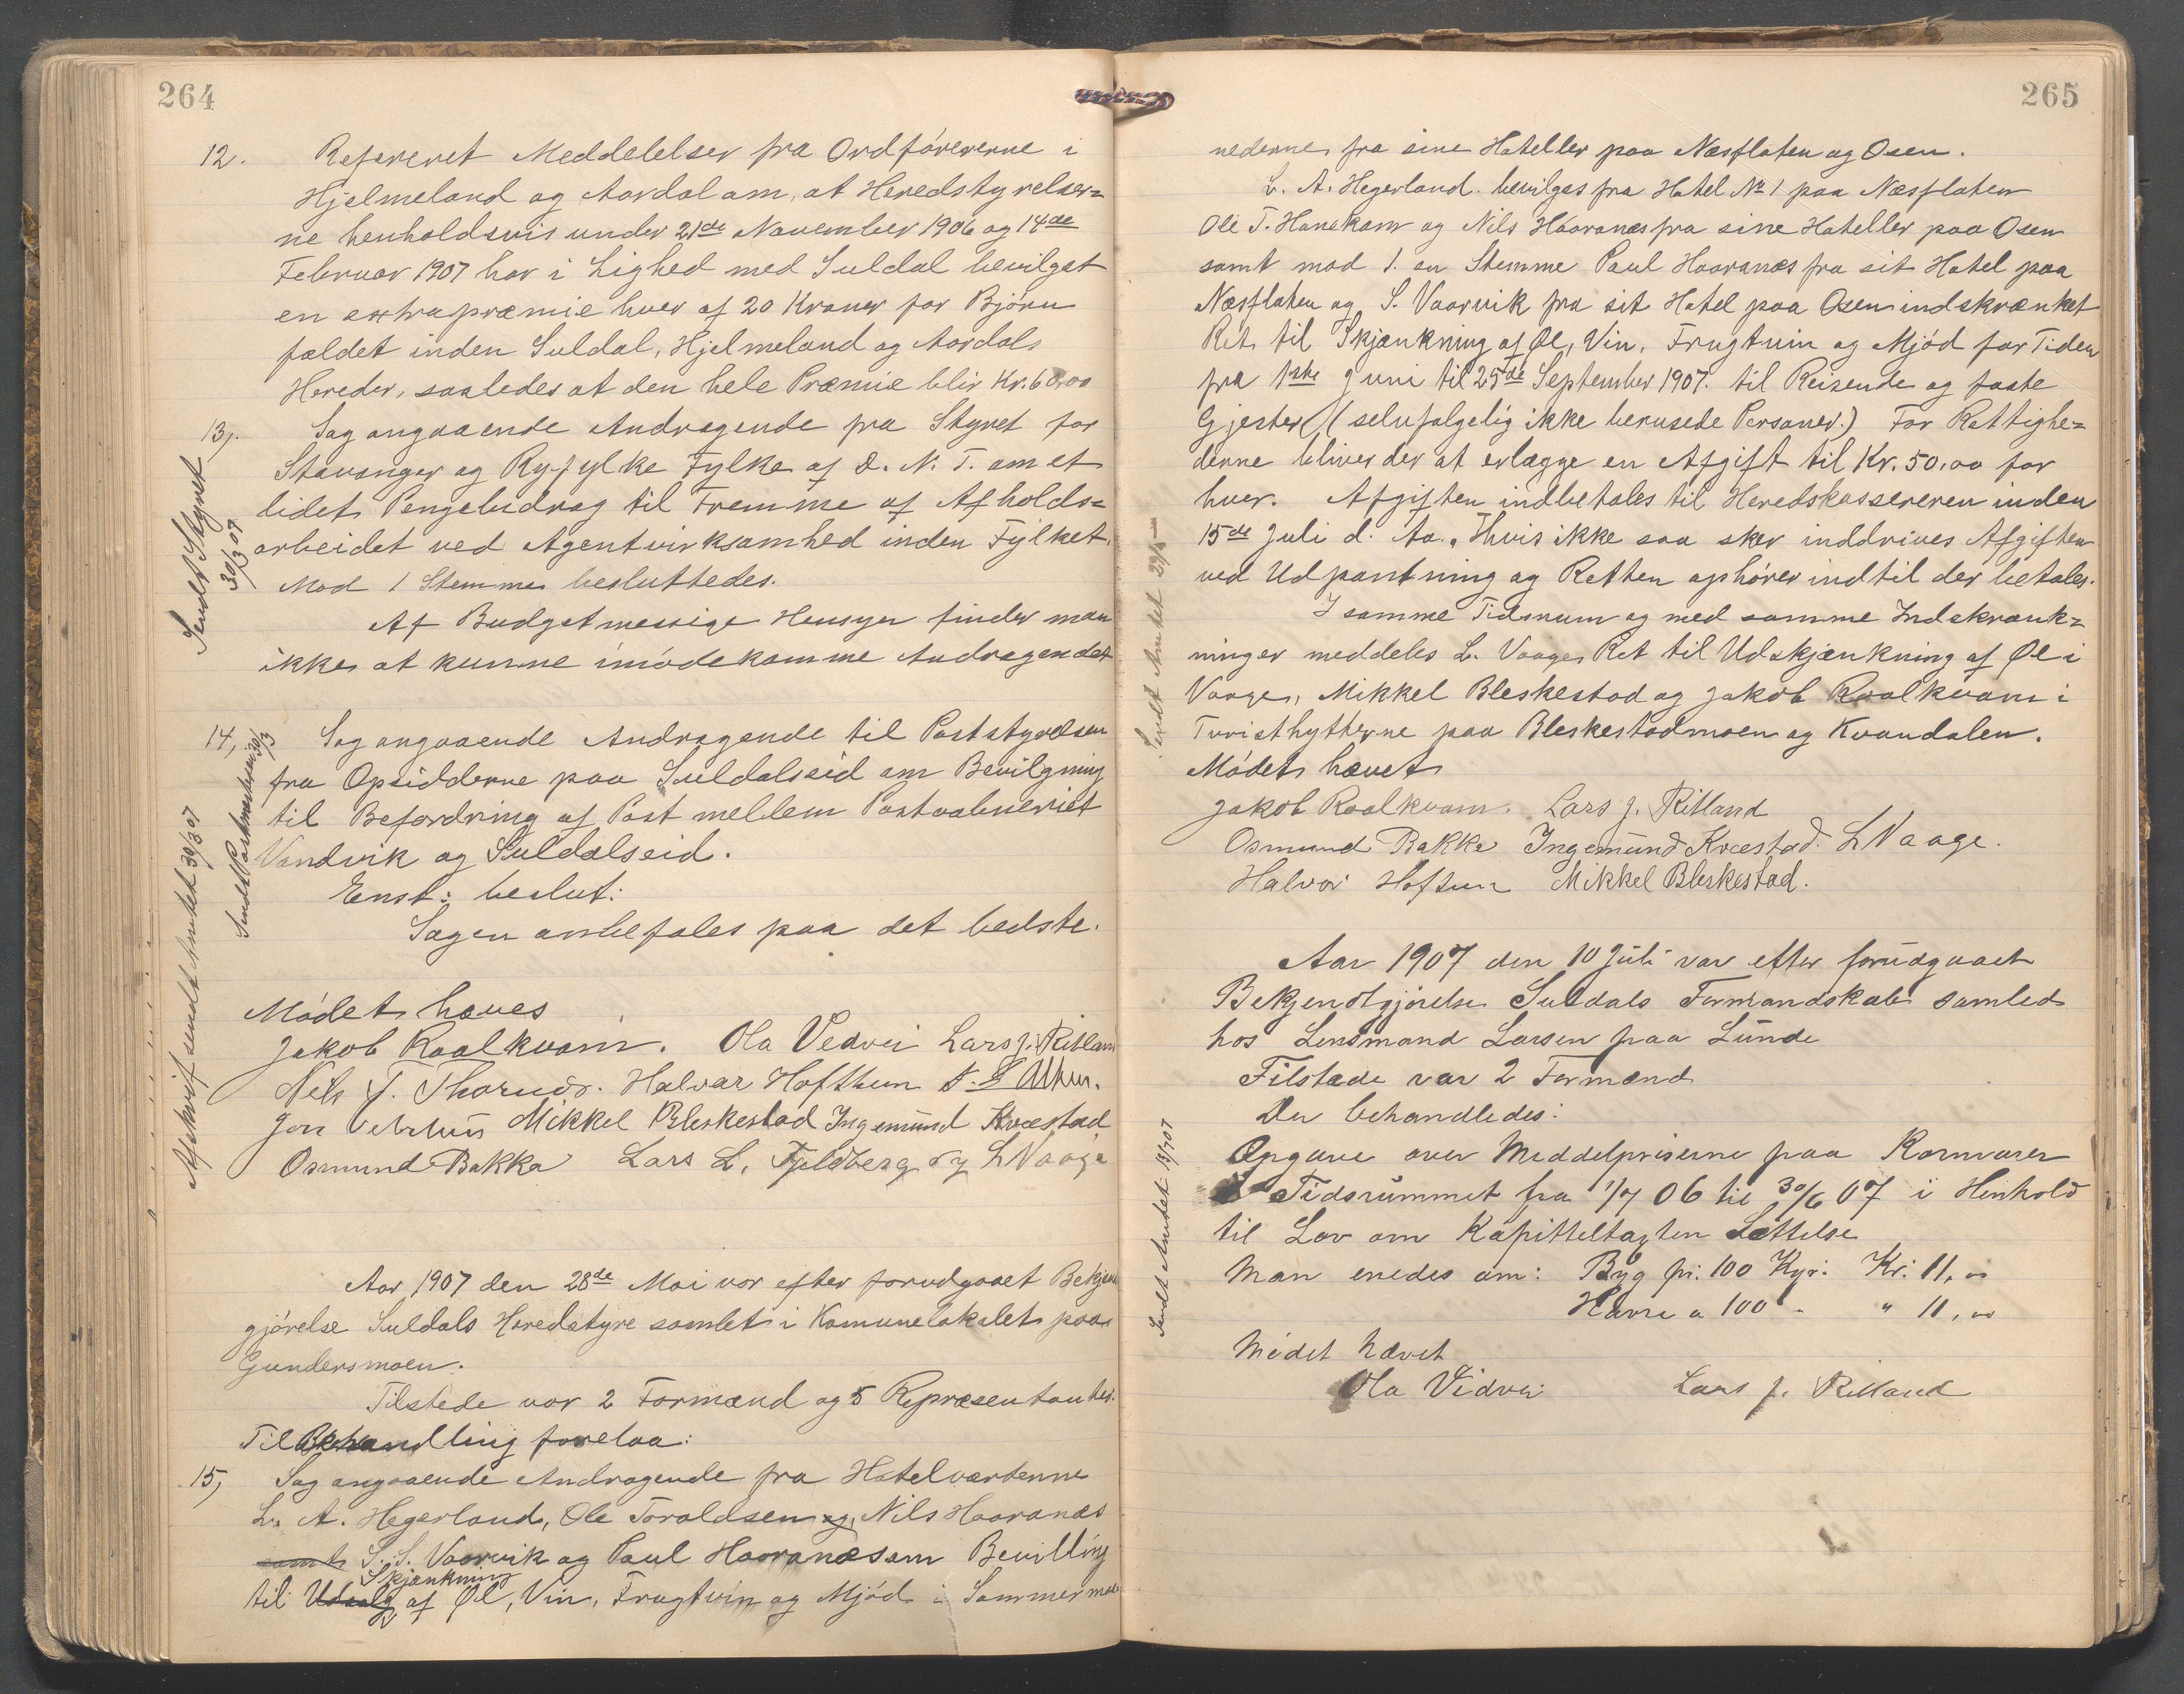 264
12. Refereret Meddelelser fra Ordförererne i
Hjelmeland og Aardal om, at Heredstyrelser=
ne henholdsvis under 21de November 1906 og 14de
Februar 1907 har i Lighed med Suldal bevilget
en extrapræmie hver af 20 Kroner for Björn
fældet inden Suldal, Hjelmeland og Aardals
Hereder, saaledes at den hele Præmie blir Kr. 60,00
13, Sag angaaende Andragende fra Styret for
Stavanger og Ryfylke Fylke af D. N. T. om et
lidet Pengebidrag til Fremme af Afholds=
arbeidet ved Agentvirksomhed inden Fylket.
Mod 1 Stemme besluttedes.
Af Budgetmessige Hensyn finder man
ikke at kunne imödekomme Andragendet
Sendt Styret
30/3 07
14, Sag angaaende Andragende til Poststyrelsen
fra Opsidderne paa Suldalseid om Bevilgning
til Befordring af Post mellem Postaabneriet
Vandvik og Suldalseid.
Enst: beslut:
Sagen anbefales paa det bedste.
Sendt Postmesteren 30/3
Afskrift sendt Amtet 30/3 07
Mödet hæves
Jakob Roalkvam. Ola Vedvei Lars J. Ritland
Nils J. Thorud. Halvar Hofthun
Jon Mikkel Bleskestad Ingemund Kvæstad
Osmund Bakka Lars L. Fjeldberg og L Vaage
Aar 1907 den 28de Mai var efter forudgaaet Bekjen
gjörelse Suldals Heredstyre samlet i Komunelokalet paa
Gundersmoen.
Tilstede var 2 Formænd og 5 Repræsentanter.
Til Behandling forelaa:
15, Sag angaaende Andragende fra Hotelværterne
L. A. Hegerland, Ole Toraldsen og Nils Haaranæs
samt S. S. Vaarvik og Paul Haaranæs om Bevilling
Skjænkning
til Udsalg af Øl, Vin, Frugtvin og Mjöd i Sommermaa
265
nederne fra sine Hoteller paa Næsflaten og Osen.
L. A. Hegerland bevilges fra Hotel No 1 paa Næsflaten
Ole T. Hanekam og Nils Haaranæs fra sine Hoteller paa Osen
samt mod 1. en Stemme Paul Haaranæs fra sit Hotel paa
Næsflaten og S. Vaarvik fra sit Hotel paa Osen indskrænket
Ret til Skjænkning af Øl, Vin, Frugtvin og Mjöd for Tiden
fra 1ste Juni til 25de September 1907. til Reisende og faste
Gjester (selvfølgelig ikke berusede Personer.) For Rettighe=
derne bliver der at erlægge en Afgift til Kr. 50,00 for
hver. Afgiften indbetales til Heredskassereren inden
15de Juli d. Aa. Hvis ikke saa sker inddrives Afgiften
ved Udpantning og Retten ophörer indtil der betales.
I samme Tidsrum og med samme Indskrænk=
ninger meddeles L. Vaage Ret til Udskjænkning af Øl i
Vaage, Mikkel Bleskestad og Jakob Roalkvam i
Turisthytterne paa Bleskestadmoen og Kvandalen.
Mödet hævet
Sendt Amtet 29/5
Jakob Roalkvam. Lars J. Ritland
Osmund Bakke Ingemund Kvæstad. L Vaage.
Halvor Hoftun Mikkel Bleskestad.
Aar 1907 den 10 Juli var efter forudgaaet
Bekjendtgjörelse Suldals Formandskab samled
hos Lensmand Larsen paa Lunde
Tilstæde var 2 Formænd
Der behandledes:
Opgave over Middelpriserne paa Kornvarer
i Tidsrummet fra 1/7 06 til 30/6 07 i Henhold
til Lov om Kapitteltagten Sættelse
Man enedes om: Byg pr. 100 Kgr. Kr: 11,00
Havre " 100 " " 11,00
Mödet hævet
Ola Vedvei Lars J. Ritland
Sendt Amtet